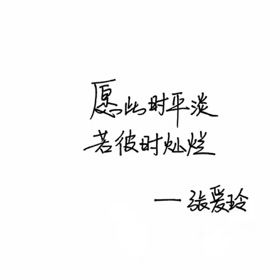 愿此时平淡
若彼时灿烂
一张爱玲